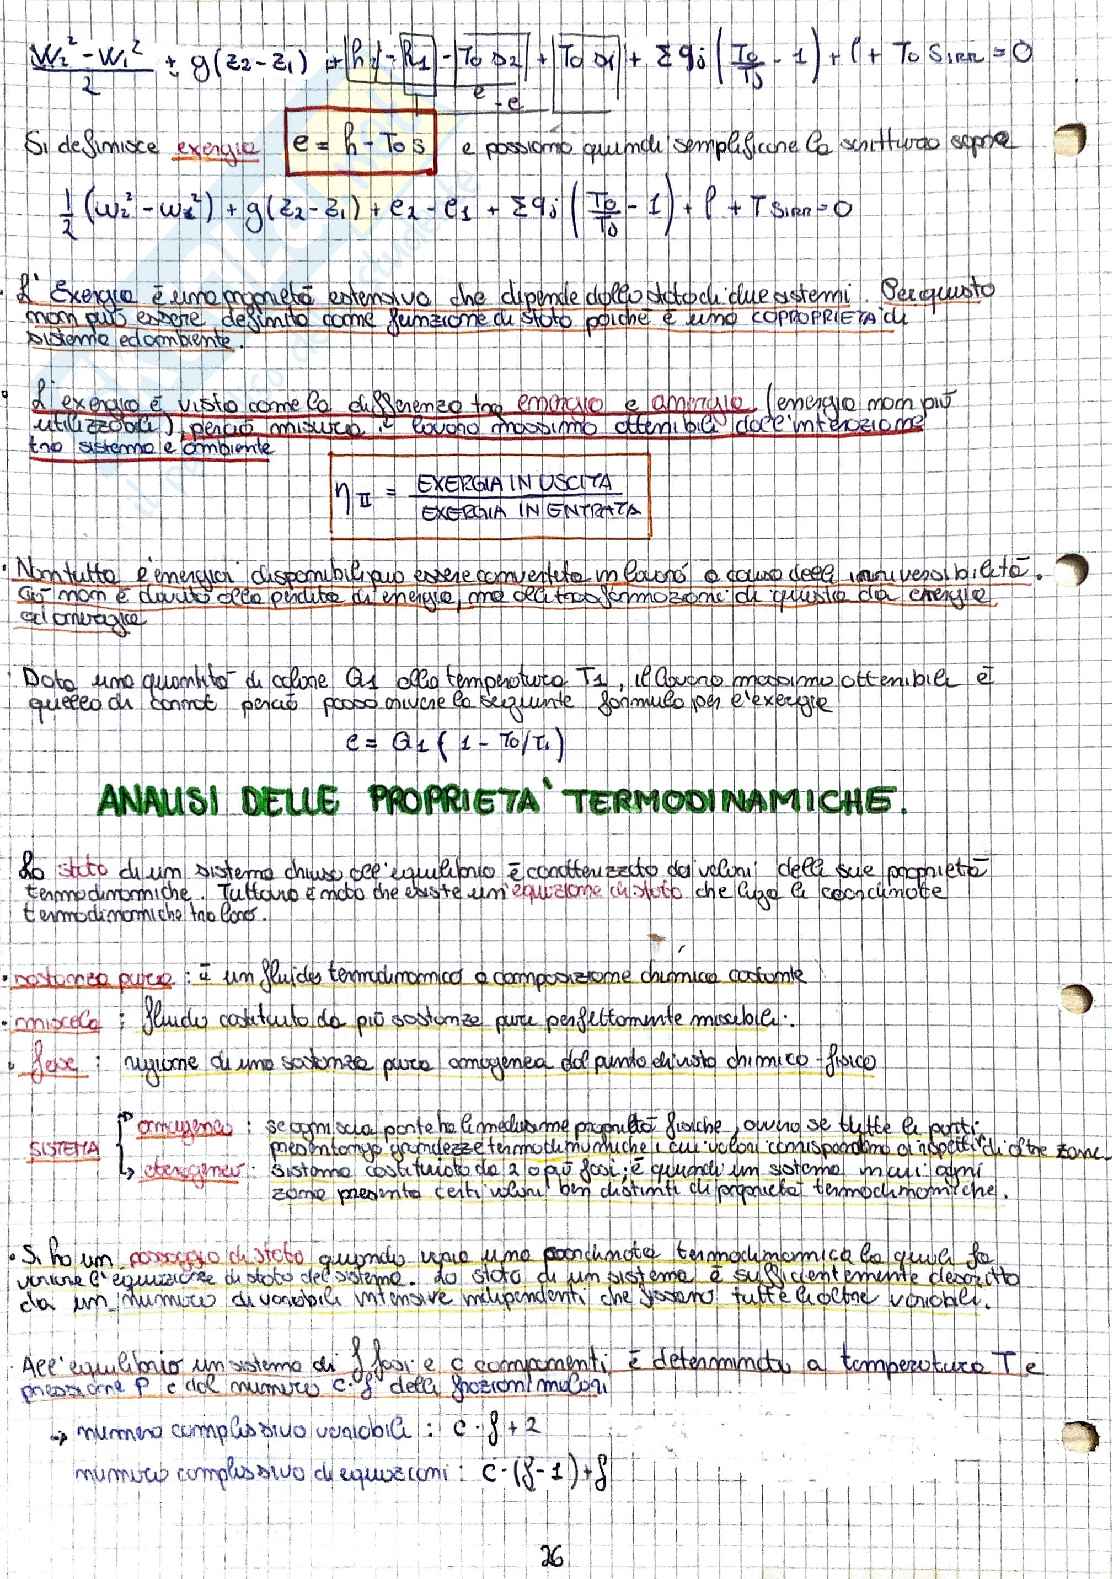 w₂² - w₁² / 2 + g(z₂ - z₁) + h₂ - h₁ - T₀s₂ + T₀s₁ + Σqⱼ (T₀/Tⱼ - 1) + l + T₀ Sirr = 0
e
-e
Si definisce exergia e = h - T₀s e possiamo quindi semplificare la scrittura sopra
1/2 (w₂² - w₁²) + g(z₂ - z₁) + e₂ - e₁ + Σqⱼ (T₀/Tⱼ - 1) + l + T Sirr = 0
L' Exergia è una proprietà estensiva che dipende dallo stato di due sistemi. Per questo
non può essere definita come funzione di stato poiché è una COPROPRIETÀ di
sistema ed ambiente.
L'exergia è vista come la differenza tra energia e anergia (energia non più
utilizzabile), perciò misura il lavoro massimo ottenibile dall'interazione
tra sistema e ambiente
η II = EXERGIA IN USCITA / EXERGIA IN ENTRATA
Non tutta l'energia disponibile può essere convertita in lavoro a causa delle irriversibilità.
Ciò non è dovuto alla perdita di energia, ma alla trasformazione di questa da energia
ad anergia
Data una quantità di calore Q1 alla temperatura T1, il lavoro massimo ottenibile è
quello di carnot perciò posso scrivere la seguente formula per l'exergia
e = Q1 ( 1 - T0/T1 )
ANALISI DELLE PROPRIETA' TERMODINAMICHE.
Lo stato di un sistema chiuso all'equilibrio è caratterizzato dai valori delle sue proprietà
termodinamiche. Tuttavia è noto che esiste un'equazione di stato che lega le coordinate
termodinamiche tra loro.
• sostanza pura : è un fluido termodinamico a composizione chimica costante
• miscela : fluido costituito da più sostanze pure perfettamente miscibili.
• fase : regione di una sostanza pura omogenea dal punto di vista chimico-fisico
SISTEMA
omogeneo : se ogni sua parte ha le medesime proprietà fisiche, ovvero se tutte le parti
presentano grandezze termodinamiche i cui valori corrispondono ai rispettivi di altre zone.
eterogeneo : sistema costituito da 2 o più fasi; è quindi un sistema in cui ogni
zona presenta certi valori ben distinti di proprietà termodinamiche.
• Si ha un passaggio di stato quando varia una coordinata termodinamica la quale fa
variare l'equazione di stato del sistema. Lo stato di un sistema è sufficientemente descritto
da un numero di variabili intensive indipendenti che fissano tutte le altre variabili.
All'equilibrio un sistema di f fasi e c componenti è determinato a temperatura T e
pressione P e dal numero c·f delle frazioni molari
→ numero complessivo variabili : c·f + 2
numero complessivo di equazioni : c·(f-1)+f
26